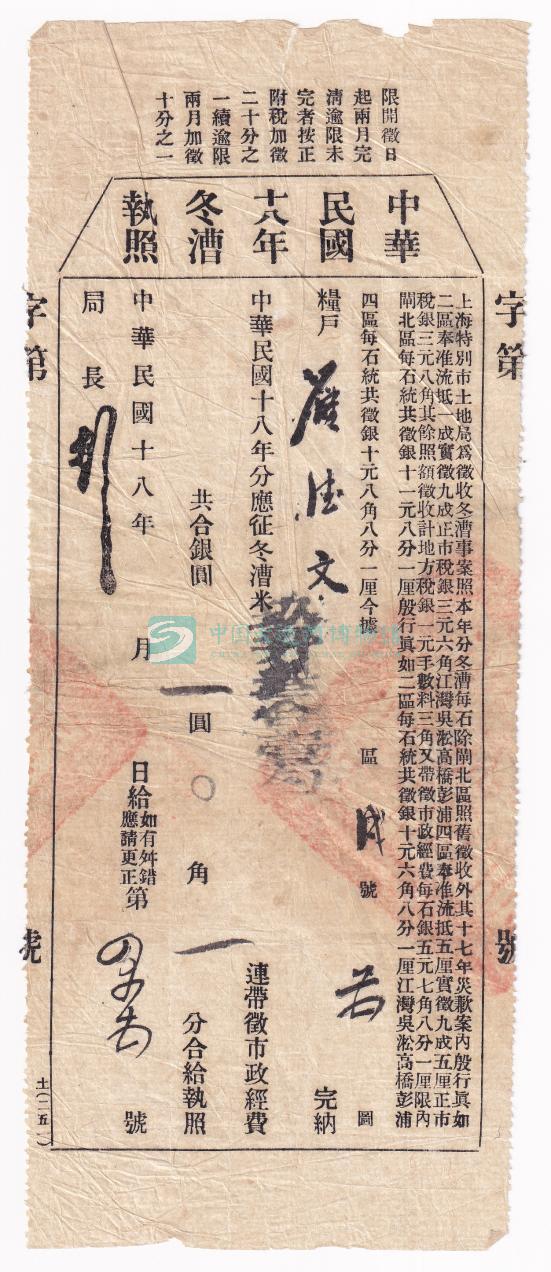 限開徵日
起兩月完
清逾限未
完者按正
附稅加徵
二十分之
一續逾限
兩月加徵
十分之一
中華
民國
十八年
冬漕
執照
上海特別市土地局為徵收冬漕事案照本年分冬漕每石除閘北區照舊徵收外其十七年災歉案內殷行眞如
二區奉准流抵一成實徵九成正市稅銀三元六角江灣吳淞高橋彭浦四區奉准流抵五厘實徵九成五厘正市
稅銀三元八角其餘照額徵收計地方稅銀一元手數料三角又帶徵市政經費每石銀五元七角八分一厘限內
閘北區每石統共徵銀十一元八分一厘殷行眞如二區每石統共徵銀十元六角八分一厘江灣吳淞高橋彭浦
四區每石統共徵銀十元八角八分一厘今據 區 號 圖
糧戶 德文 完納
中華民國十八年分應征冬漕米 連帶徵市政經費
共合銀圓 一 圓 〇 角 一 分合給執照
中華民國十八年 月 日給如有舛錯應請更正第 號
局長
字第 號
字第 號
土(二五一)